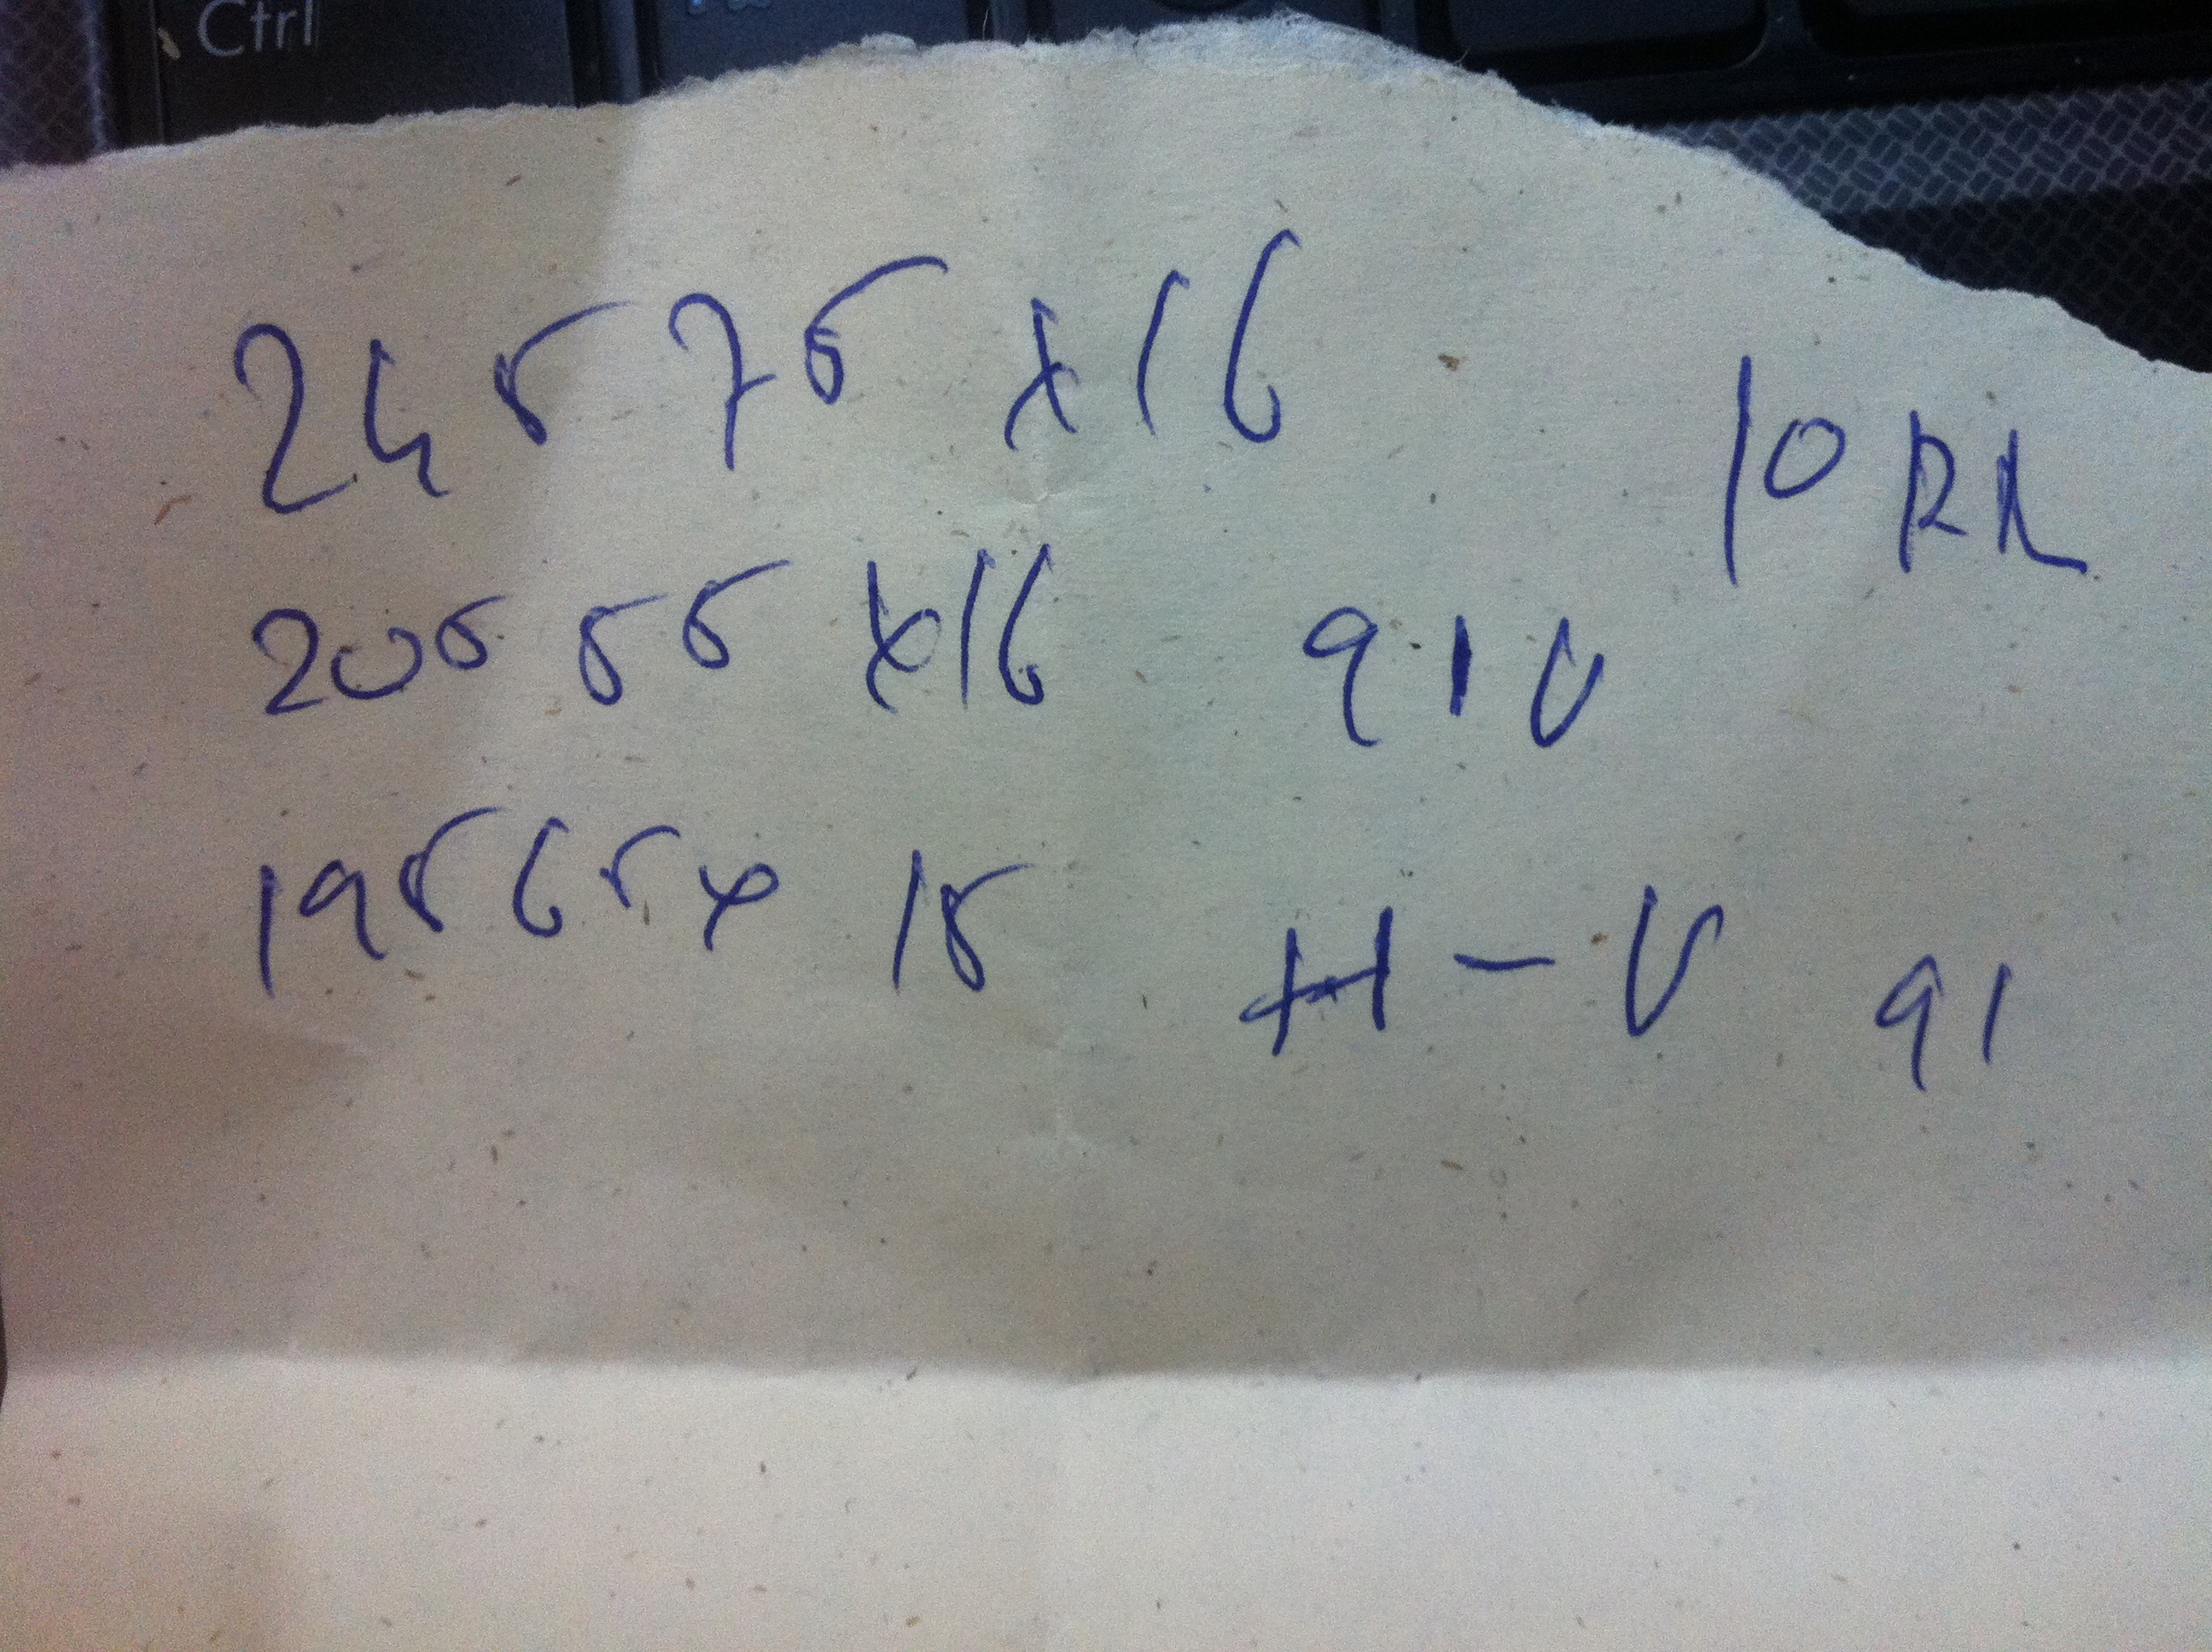 Ctrl
245 75 x 16 10 PR
205 55 x 16 91V
195 65 x 15 H - V 91